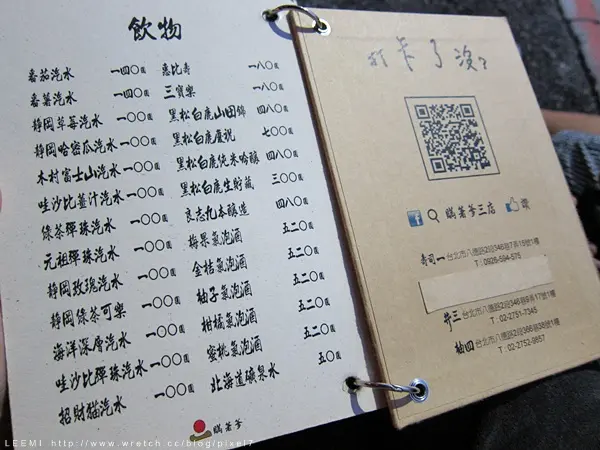 飲物
番茄汽水 一四〇圓
番薯汽水 一四〇圓
靜岡草莓汽水 一〇〇圓
靜岡哈密瓜汽水 一〇〇圓
木村富士山汽水 一〇〇圓
哇沙比薑汁汽水 一〇〇圓
綠茶彈珠汽水 一〇〇圓
元祖彈珠汽水 一〇〇圓
靜岡玫瑰汽水 一〇〇圓
靜岡綠茶可樂 一〇〇圓
海洋深層汽水 一〇〇圓
哇沙比彈珠汽水 一〇〇圓
招財貓汽水 一〇〇圓
惠比壽 一八〇圓
三寶樂 一八〇圓
黑松白鹿山田錦 四八〇圓
黑松白鹿慶祝 七〇〇圓
黑松白鹿純米吟釀 四八〇圓
黑松白鹿生貯藏 三〇〇圓
良志久本釀造 四八〇圓
梅果氣泡酒 五二〇圓
金桔氣泡酒 五二〇圓
柚子氣泡酒 五二〇圓
柑橘氣泡酒 五二〇圓
蜜桃氣泡酒 五二〇圓
北海道礦泉水 五〇圓
打卡了沒?
三店 讚
壽司一 台北市八德路2段346巷7弄15號1樓
T : 0926-594-575
丼三 台北市八德路2段346巷9弄17號1樓
T : 02-2751-7345
柚四
T : 02-2752-9857
LEEMI http://www.wretch.cc/blog/pixel7